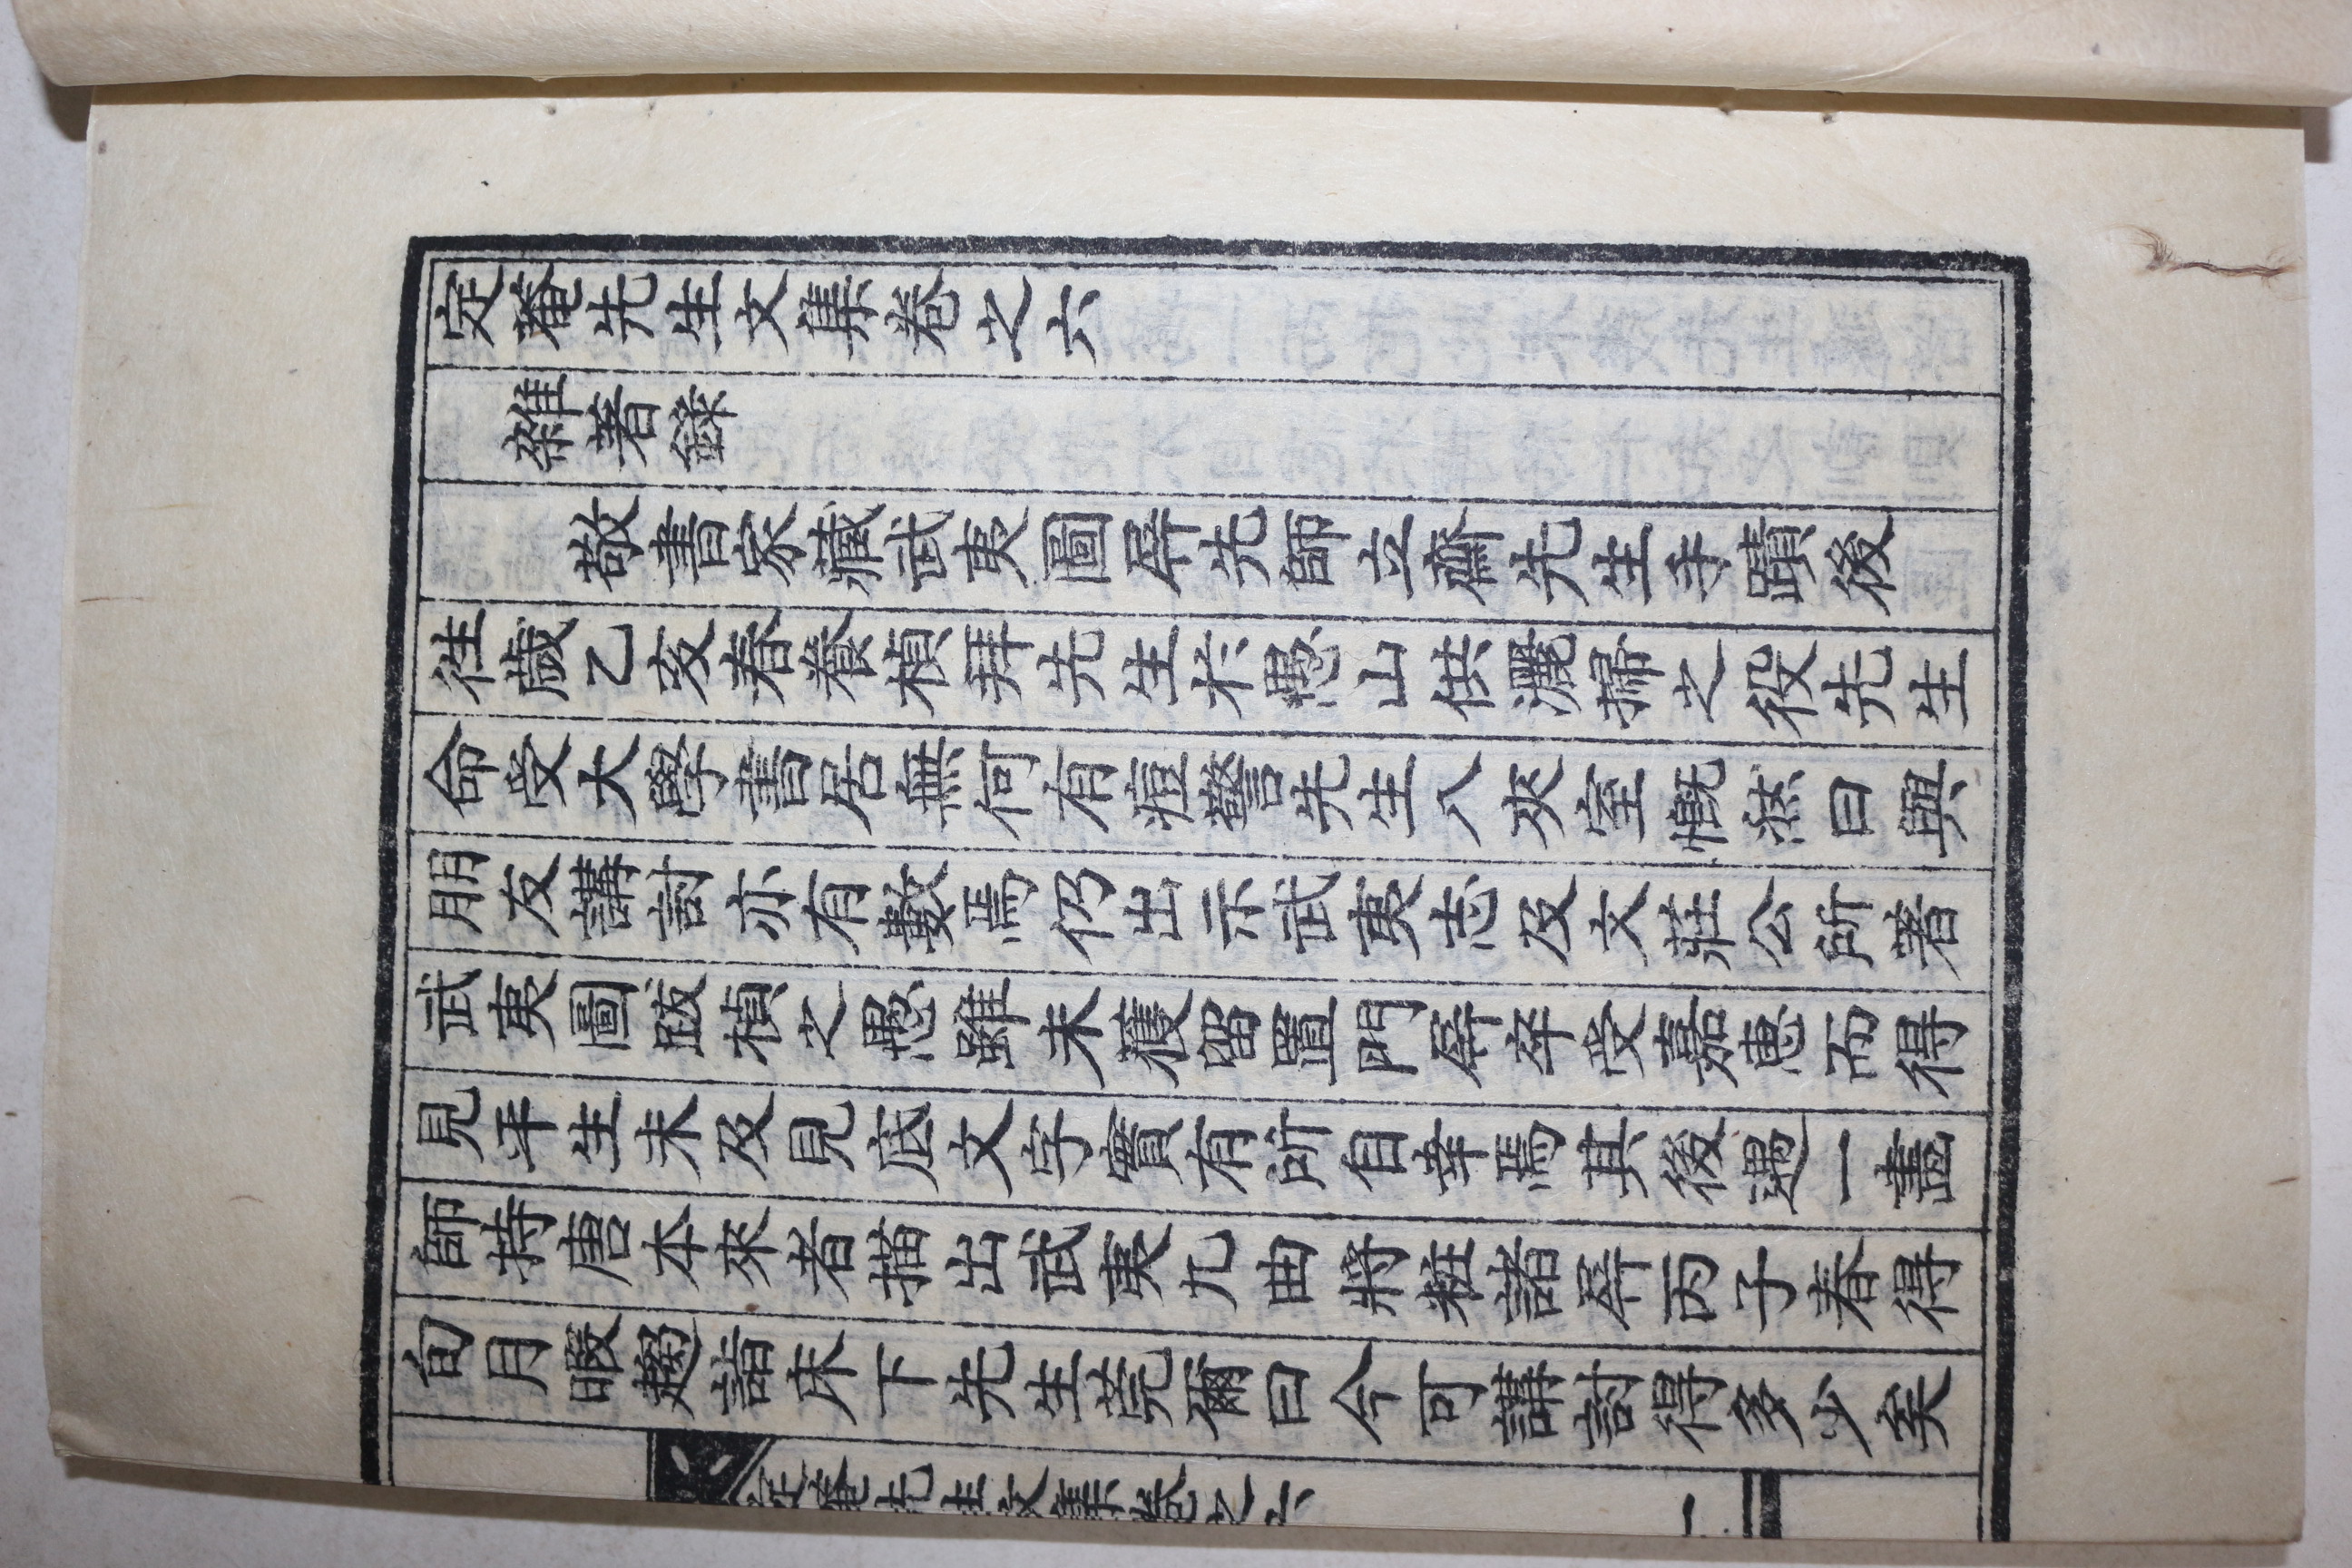 定菴先生文集卷之六
雜著錄
敬書家藏武夷圖屛先師立齋先生手蹟後
徃歲乙亥春養楨拜先生於愚山供灑掃之役先生
命受大學書居無何有痘警先生入夾室慨然曰與
朋友講討亦有數焉仍出示武夷志及文莊公所著
武夷圖跋楨之愚雖未獲留置門屛卒受嘉惠而得
見平生未及見底文字實有所自幸焉其後遇一畫
師持唐本來者描出武夷九曲將粧諸屛丙子春得
旬月暇趨詣床下先生莞爾曰今可講討得多少矣
定菴先生文集卷之六
一